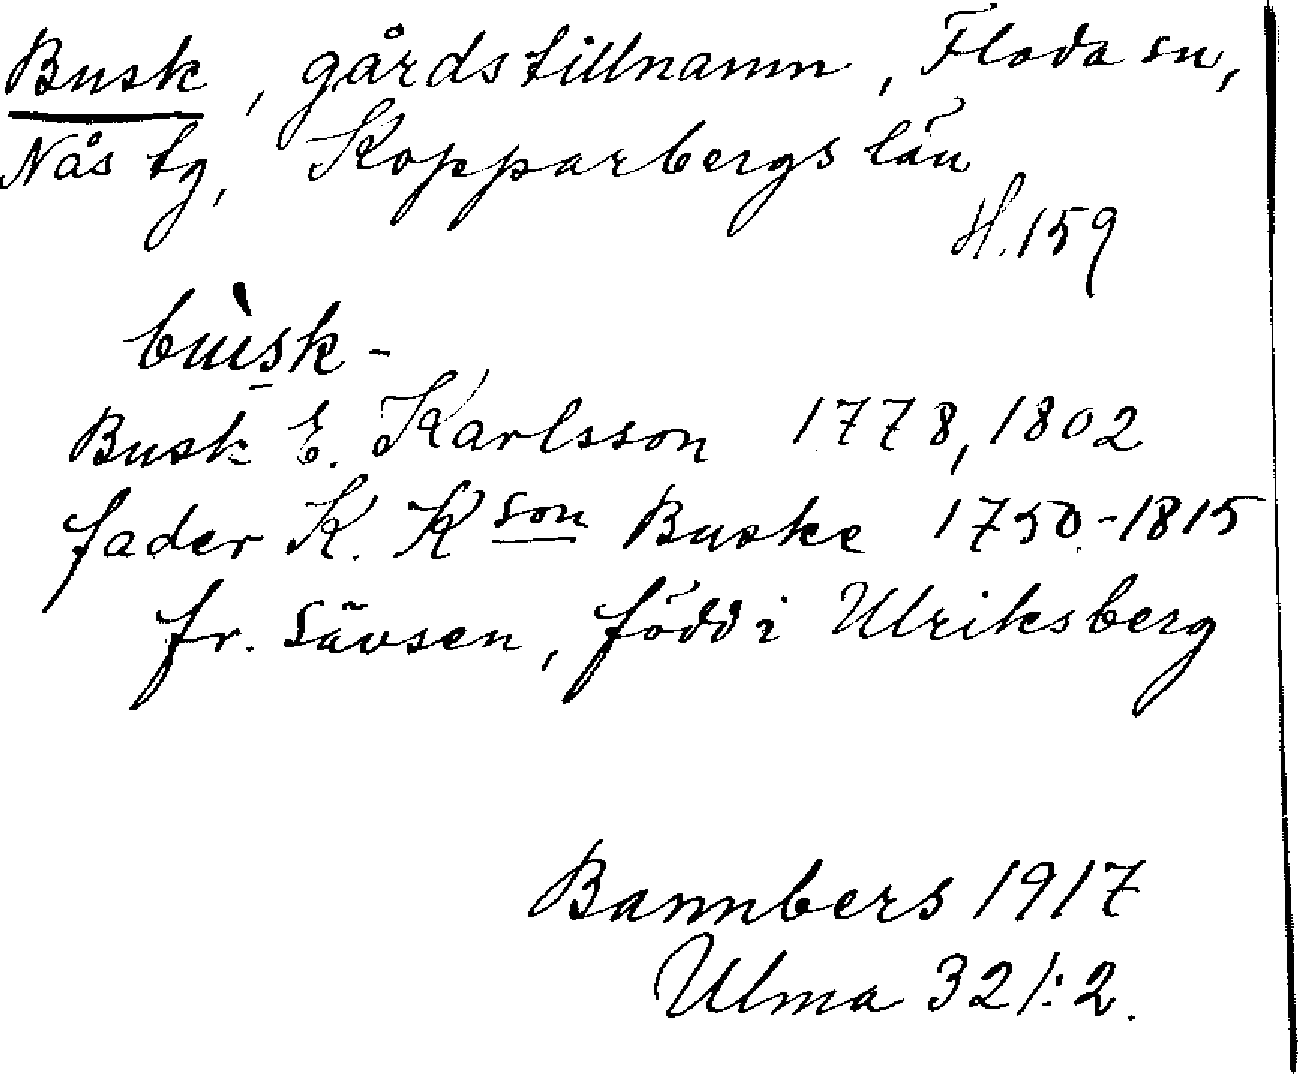 Busk, gårdstillnamn, Floda sn,
Nås tg, Kopparbergs län
H. 159
bùsk-
Busk E. Karlsson 1778, 1802
fader K. Kson Buske 1750-1815
fr. Sävsen, född i Ulriksberg
Bannbers 1917
Ulma 321:2.